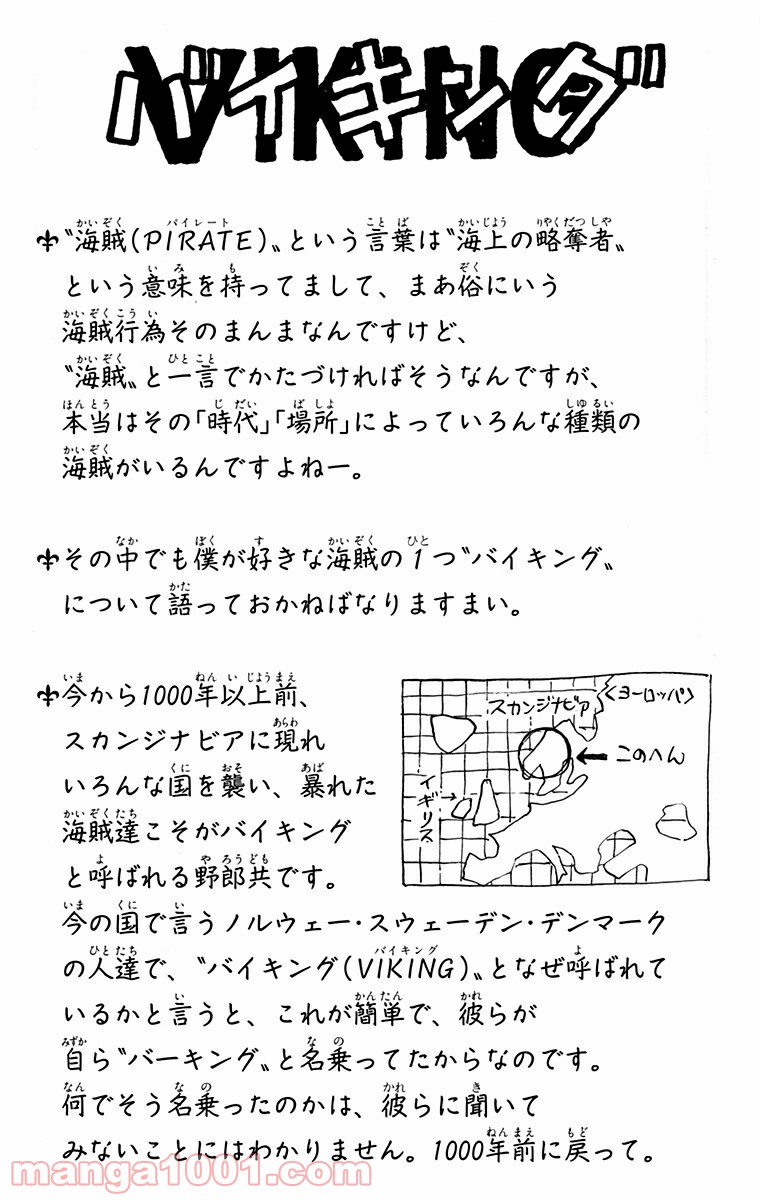 VIKING
バイキング
〝海賊(PIRATE)〟という言葉は〝海上の略奪者〟
という意味を持ってまして、まあ俗にいう
海賊行為そのまんまなんですけど、
〝海賊〟と一言でかたづければそうなんですが、
本当はその「時代」「場所」によっていろんな種類の
海賊がいるんですよねー。
その中でも僕が好きな海賊の1つ〝バイキング〟
について語っておかねばなりますまい。
今から1000年以上前、
スカンジナビアに現れ
いろんな国を襲い、暴れた
海賊達こそがバイキング
と呼ばれる野郎共です。
<ヨーロッパ>
スカンジナビア
このへん
イギリス
今の国で言うノルウェー・スウェーデン・デンマーク
の人達で、〝バイキング(VIKING)〟となぜ呼ばれて
いるかと言うと、これが簡単で、彼らが
自ら〝バーキング〟と名乗ってたからなのです。
何でそう名乗ったのかは、彼らに聞いて
みないことにはわかりません。1000年前に戻って。
manga1001.com